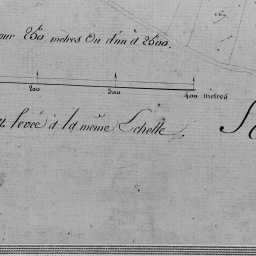 our 250 metres ou d'un à 2500.
200 300 400 metres
levée à la même Echelle.